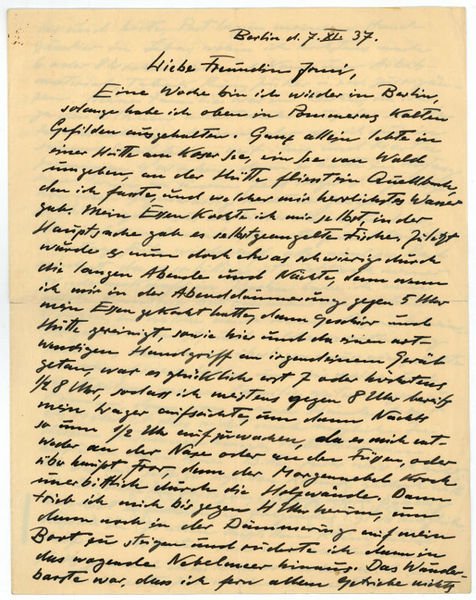 Berlin d. 7. XI. 37.
Liebe Freundin Jomi,
Eine Woche bin ich wieder in Berlin,
solange habe ich oben in Pommerns Kalten
Gefilden ausgehalten. Ganz allein lebte in
einer Hütte am See, ein See von Wald
umgeben, an der Hütte fliesst ein Quellbach,
den ich fasste, und welcher mir herrlichstes Wasser
gab. Mein Essen kochte ich mir selbst, in der
Hauptsache gab es selbstgeangelte Fische. Zuletzt
wurde es nun doch etwas schwierig durch
die langen Abende und Nächte, denn wenn
ich mir in der Abenddämmerung gegen 5 Uhr
mein Essen gekocht hatte, dann Geschirr und
Hütte gereinigt, sowie hier und da einen not-
wendigen Handgriff an irgendeinem Gerät
getan, war es glücklich erst 7 oder höchstens
1/2 8 Uhr, sodass ich meistens gegen 8 Uhr bereits
mein Lager aufsuchte, um dann Nachts
so um 1/2 Uhr aufzuwachen, da es mich ent-
weder an der Nase oder an den Füssen, oder
überhaupt fror, denn der Morgennebel kroch
unerbittlich durch die Holzwände. Dann
trieb ich mich bis gegen 4 Uhr herum, um
dann noch in der Dämmerung auf mein
Boot zu steigen und ruderte ich dann in
das wogende Nebelmeer hinaus. Das Wunder-
barste war, dass ich fern allem Getriebe nichts